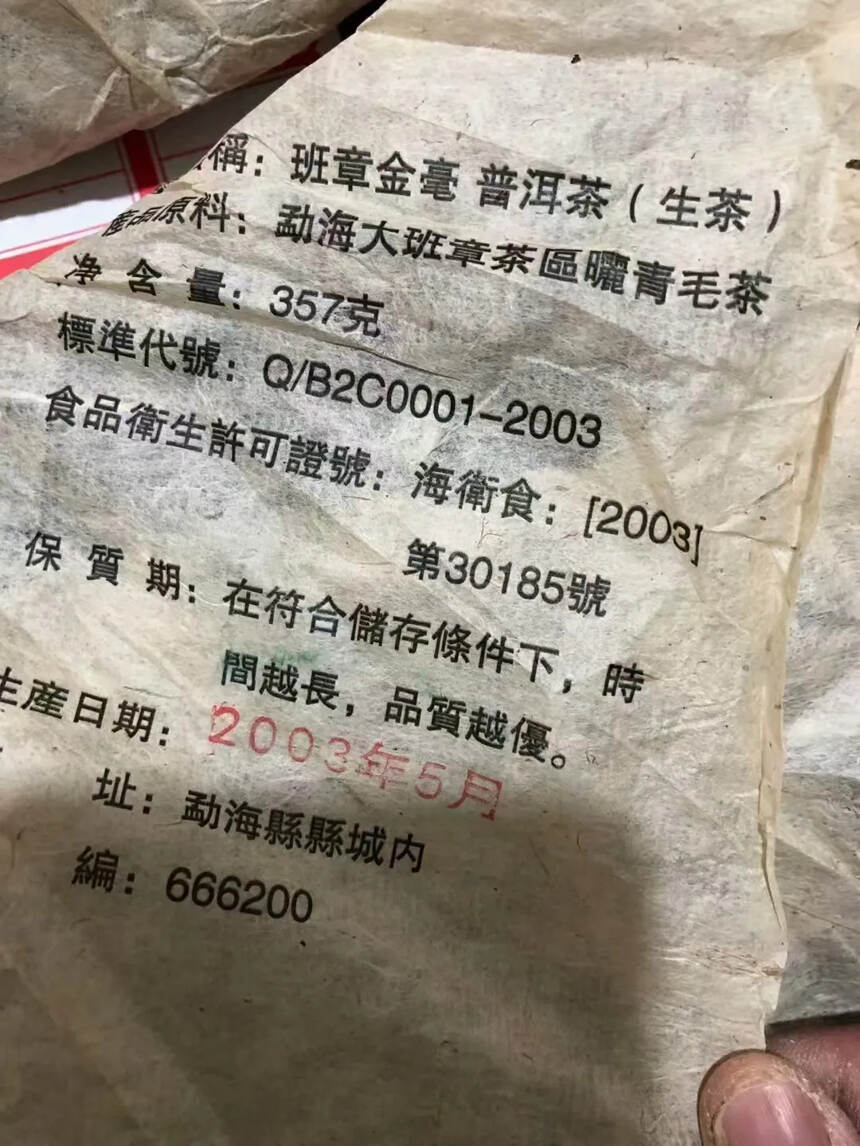 稱：班章金毫 普洱茶（生茶）
產品原料：勐海大班章茶區曬青毛茶
净含量：357克
標準代號：Q/B2C0001-2003
食品衛生許可證號：海衛食：[2003]
第30185號
保質期：在符合儲存條件下，時
間越長，品質越優。
生產日期：2003年5月
址：勐海縣縣城内
編：666200